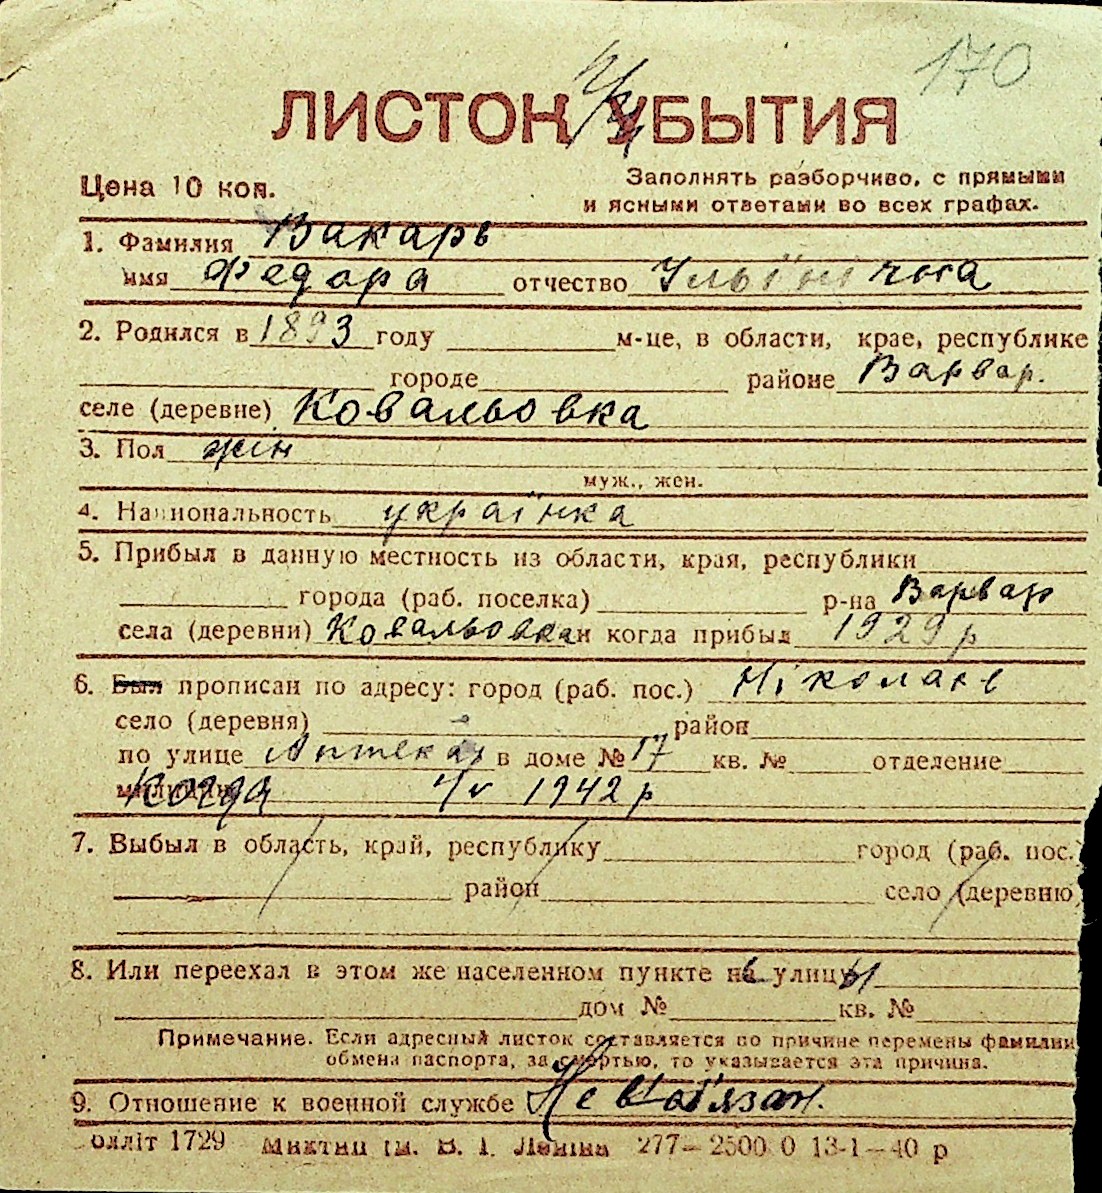 170
ЛИСТОК УБЫТИЯ
Цена 10 коп.
Заполнять разборчиво, с прямыми
и ясными ответами во всех графах.
1. Фамилия Вакарь
имя Федора отчество Ульїнічна
2. Родился в 1893 году м-це, в области, крае, республике
городе районе Варвар.
селе (деревне) Ковальовка
3. Пол жін
муж., жен.
4. Национальность українка
5. Прибыл в данную местность из области, края, республики
города (раб. поселка) р-на Варвар
села (деревни) Ковальовка и когда прибыл 1929 р
6. Был прописан по адресу: город (раб. пос.) Ніколаїв
село (деревня) район
по улице Аптекар в доме № 17 кв. № отделение
милиции Когда 4/V 1942 р
7. Выбыл в область, край, республику город (раб. пос.)
район село (деревню
8. Или переехал в этом же населенном пункте на улицу
дом № кв. №
Примечание. Если адресный листок составляется по причине перемены фамилии
обмена паспорта, за смертью, то указывается эта причина.
9. Отношение к военной службе Не
ʼблліт 1729 ім. В. І. Леніна 277—2500 0 13-1—40 р